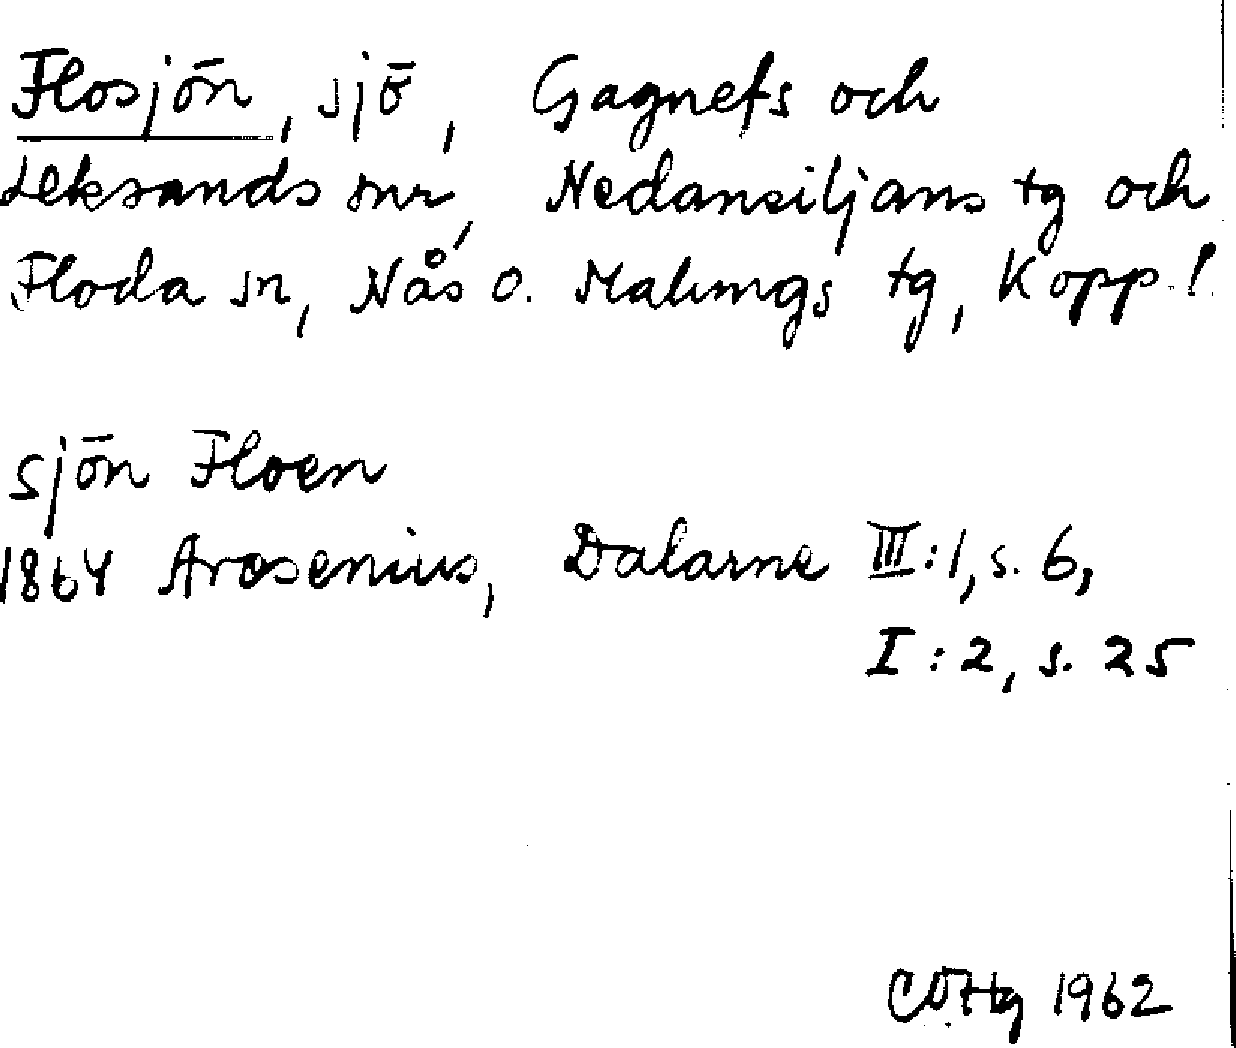 Flosjön, sjö, Gagnefs och
Leksands snr, Nedansiljans tg och
Floda sn, Nås o. Malungs tg, Kopp. l.
sjön Floen
1864 Arosenius, Dalarne III:1, s. 6,
I:2, s. 25
1962